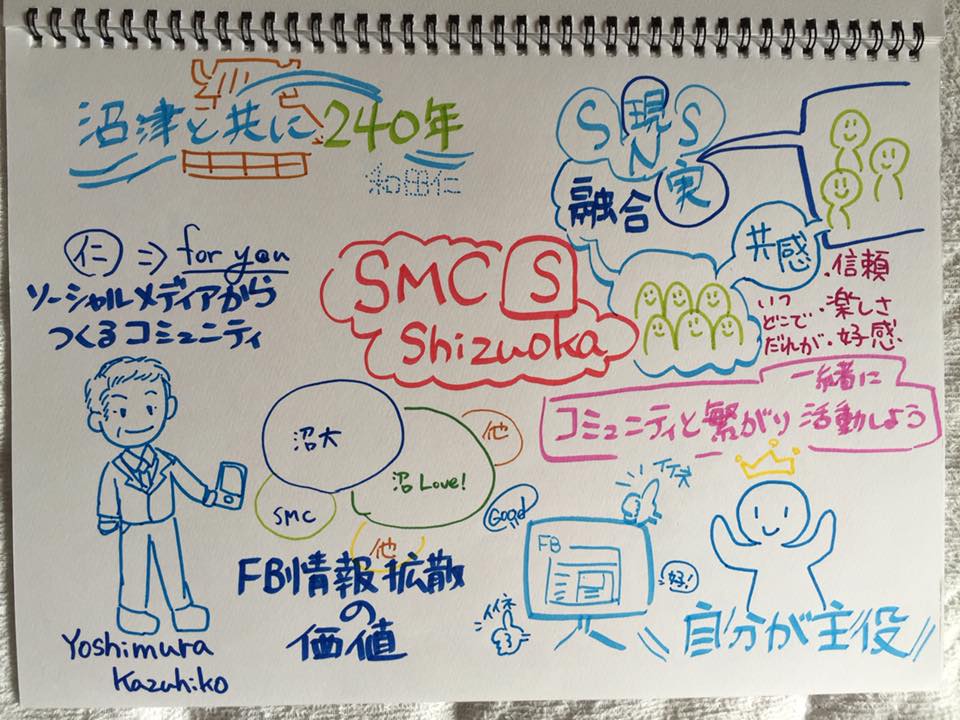 沼津と共に240年
和田仁
仁 ⇒ for you
ソーシャルメディアから
つくるコミュニティ
SNS
現実
融合
共感
・信頼
・楽しさ
・好感
いつ
どこで
だれが
SMC S
Shizuoka
一緒に
コミュニティと繋がり活動しよう
沼大
沼Love!
他
SMC
他
Good
FB情報拡散
の
価値
イイネ
FB
好!
イイネ
自分が主役
Yoshimura
Kazuhiko